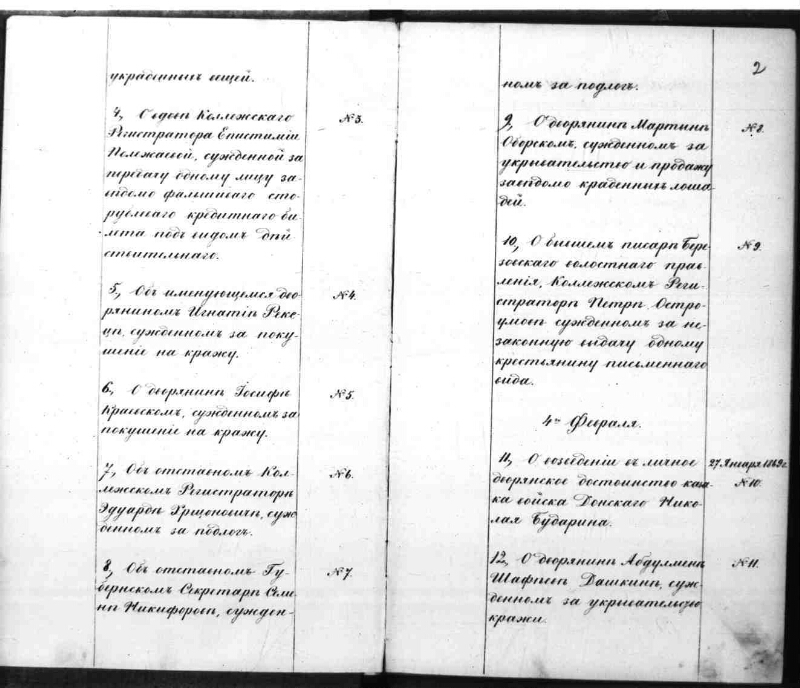 украденныхъ вещей.
4, О вдовѣ Коллежскаго № 3.
Регистратора Епистиміи
сужденной за
передачу одному лицу за-
вѣдомо фальшиваго сто-
рублеваго кредитнаго би-
лета подъ видомъ дѣй
ствительнаго.
5, Объ именующемся дво- № 4.
ряниномъ Игнатіѣ Реке-
цѣ, сужденномъ за поку-
шеніе на кражу.
6, О дворянинѣ Іосифѣ № 5.
Краевскомъ, сужденномъ за
покушеніе на кражу.
7, Объ отставномъ Кол- № 6.
лежскомъ Регистраторѣ
Эдуардѣ суж
денномъ за подлогъ.
8, Объ отставномъ Гу- № 7.
бернскомъ Секретарѣ Семе
нѣ Никифоровѣ, сужден-
2
номъ за подлогъ.
9, О дворянинѣ Мартинѣ № 8.
Оворскомъ, сужденномъ за
укрывательство и продажу
завѣдомо краденныхъ лоша
дей.
10, О бывшемъ писарѣ Бере- № 9.
зовскаго волостнаго прав-
ленія, Коллежскомъ Реги-
страторѣ Петрѣ Остро-
умовѣ сужденномъ за не-
законную выдачу одному
крестьянину письменнаго
вида.
4го Февраля.
11, О возведеніи въ личное 27 Января 1869 г.
дворянское достоинство каза- № 10.
ка войска Донскаго Нико-
лая Бударина.
12, О дворянинѣ Абдулменѣ № 11.
Шафѣевѣ Дашкинѣ, суж-
денномъ за укрывательство
кражи.